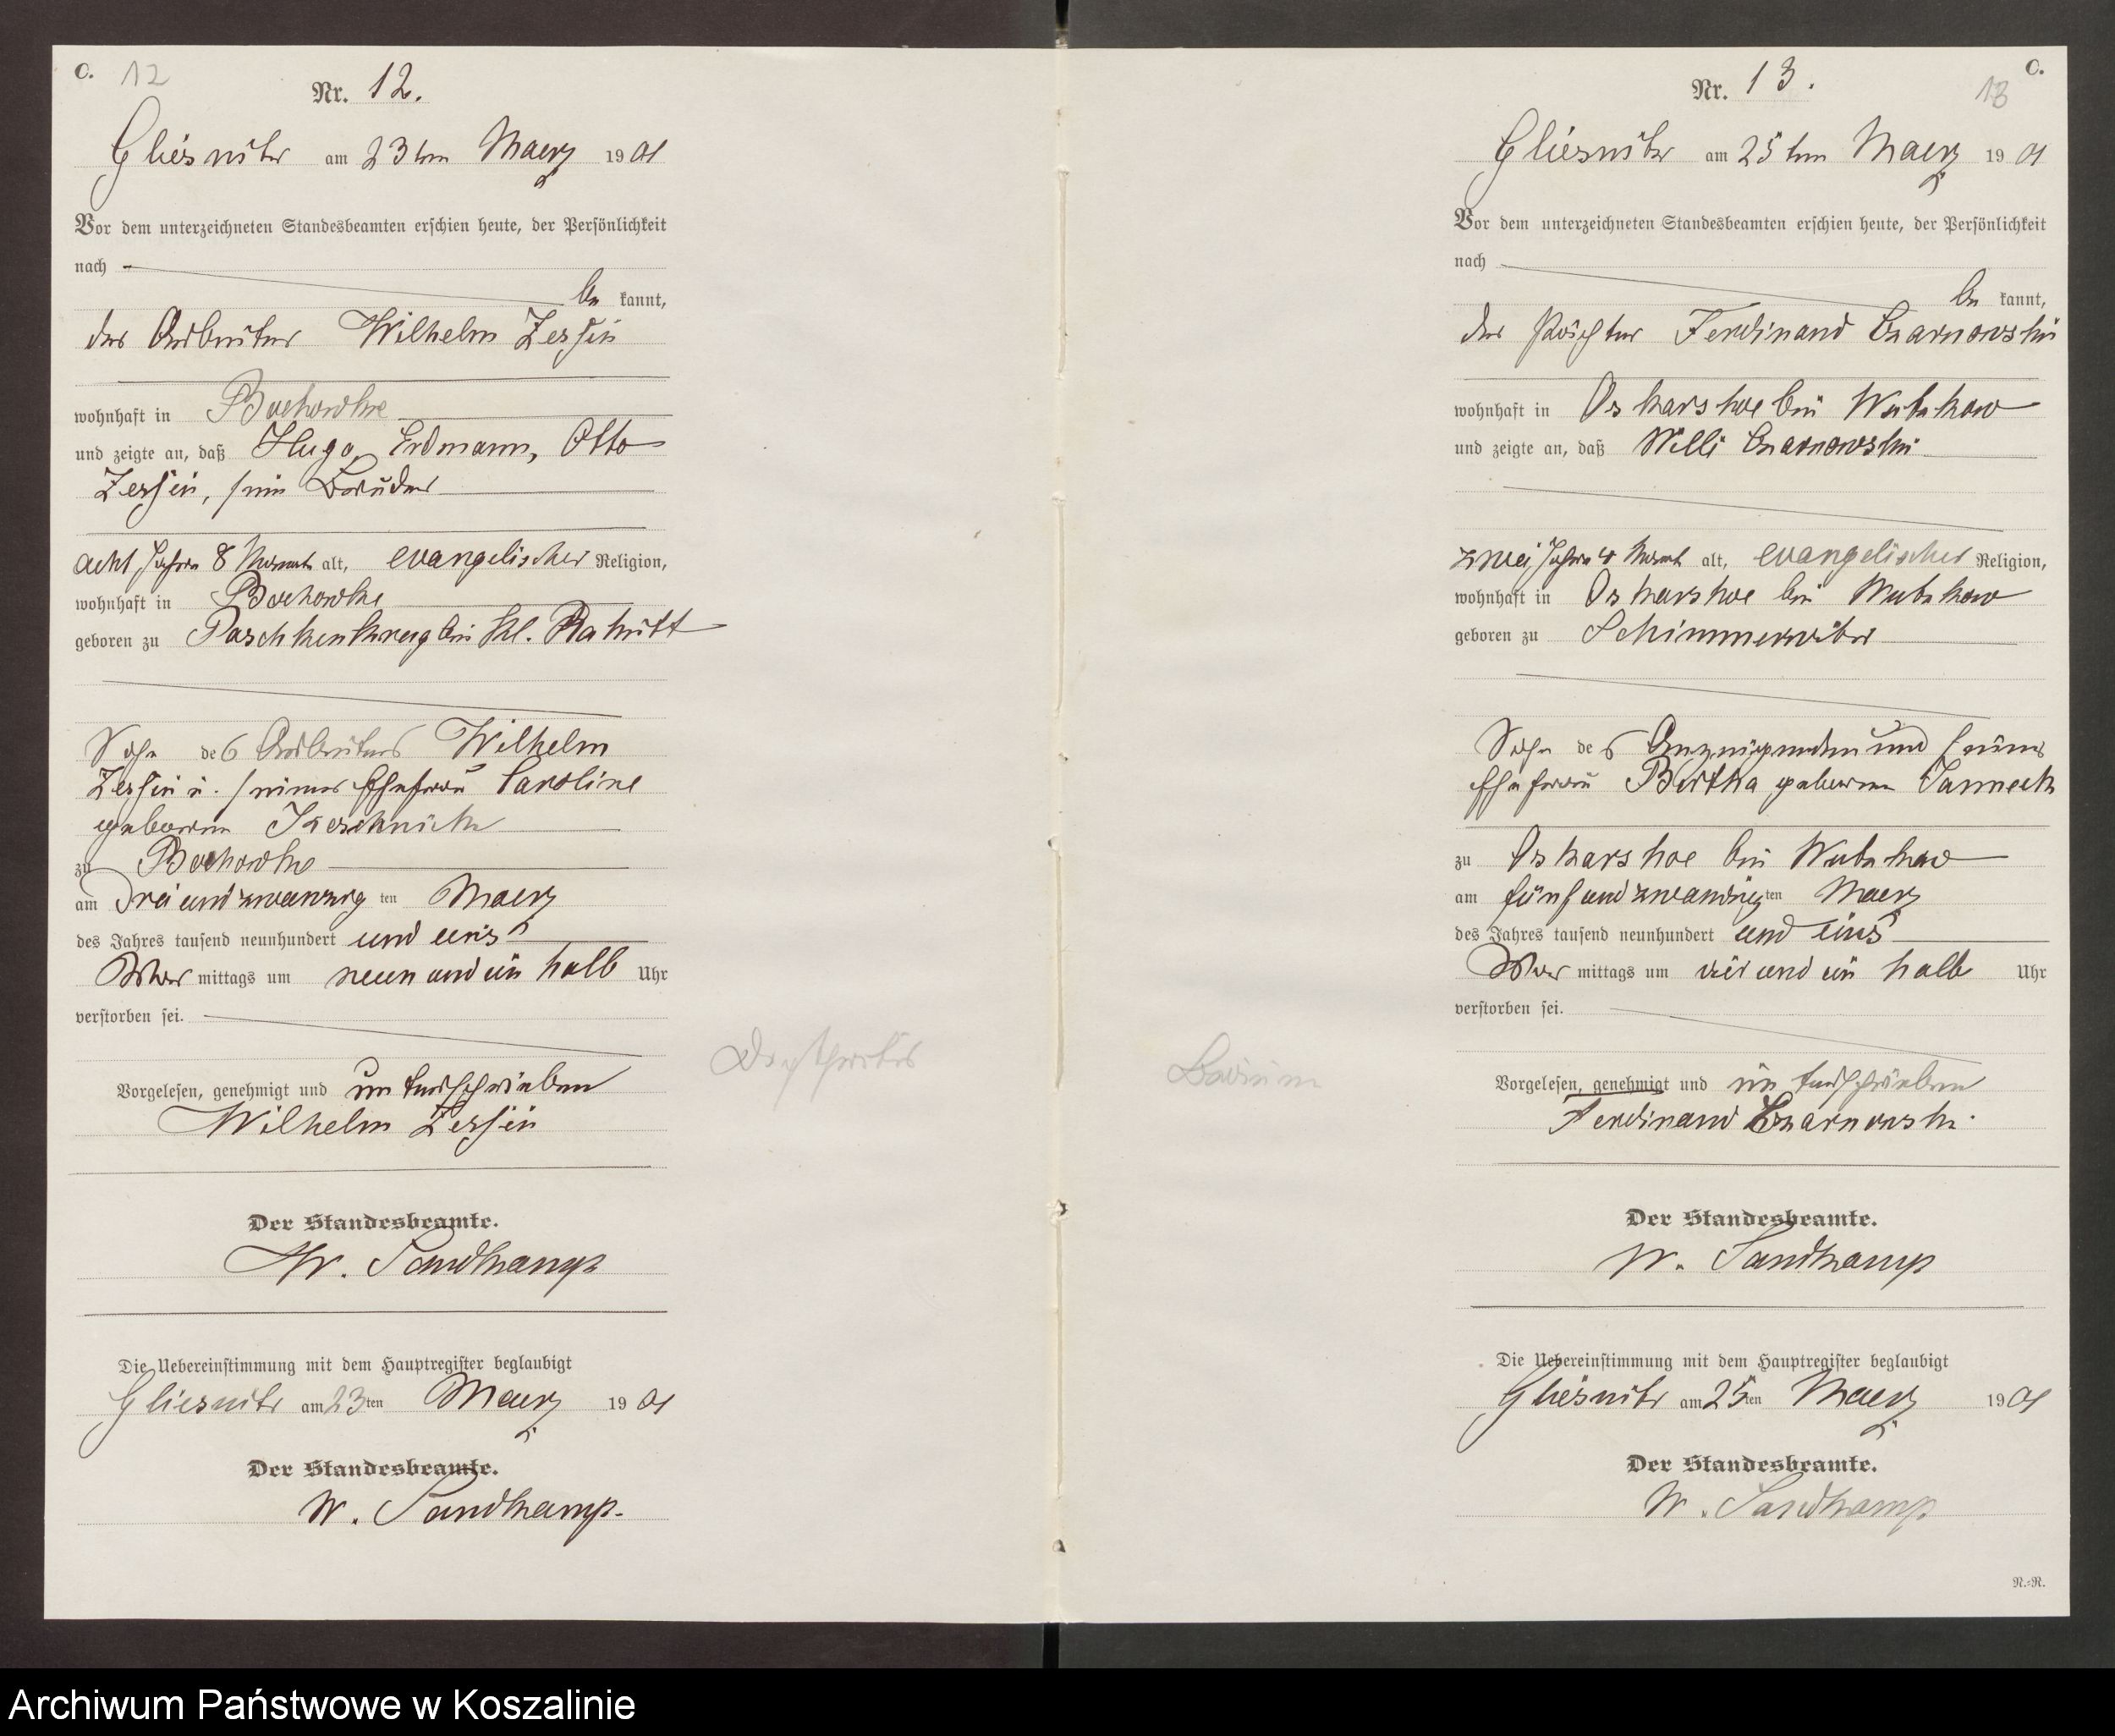 C. 12
Nr. 12.
Gliesnitz am 23ten Maerz 1901
Vor dem unterzeichneten Standesbeamten erschien heute, der Persönlichkeit
nach
be kannt,
der Arbeiter Wilhelm Zessin
wohnhaft in Bochowke
und zeigte an, daß Hugo, Erdmann, Otto
Zessin, sein Bruder
acht Jahre 8 Monate alt, evangelischer Religion,
wohnhaft in Bochowke
geboren zu Paschkenkrug bei Kl. Rakitt
Sohn des Arbeiters Wilhelm
Zessin u. seiner Ehefrau Caroline
geborene
zu Bochowke
am Dreiundzwanzig ten Maerz
des Jahres tausend neunhundert und eins
Vor mittags um neun und ein halb Uhr
verstorben sei.
Vorgelesen, genehmigt und unterschrieben
Wilhelm Zessin
Der Standesbeamte.
W. Sandkamp
Die Uebereinstimmung mit dem Hauptregister beglaubigt
Gliesnitz am 23ten Maerz 1901
Der Standesbeamte.
W. Sandkamp.
Diphtheritis
C.
Nr. 13. 13
Gliesnitz am 25ten Maerz 1901
Vor dem unterzeichneten Standesbeamten erschien heute, der Persönlichkeit
nach
be kannt,
der Pächter Ferdinand Czarnowski
wohnhaft in Oskarshoe bei Wutzkow
und zeigte an, daß Willi Czarnowski
zwei Jahre 4 Monat alt, evangelischer Religion,
wohnhaft in Oskarshoe bei Wutzkow
geboren zu Schimmerwitz
Sohn des Anzeigenden und seiner
Ehefrau Bertha geborene Janneck
zu Oskarshoe bei Wutzkow
am fünfundzwanzigten Maerz
des Jahres tausend neunhundert und eins
Vor mittags um vier und ein halb Uhr
verstorben sei.
Vorgelesen, genehmigt und unterschrieben
Ferdinand Czarnowski.
Der Standesbeamte.
W. Sandkamp
Die Uebereinstimmung mit dem Hauptregister beglaubigt
Gliesnitz am 25ten Maerz 1901
Der Standesbeamte.
W. Sandkamp
R.=R.
Archiwum Państwowe w Koszalinie